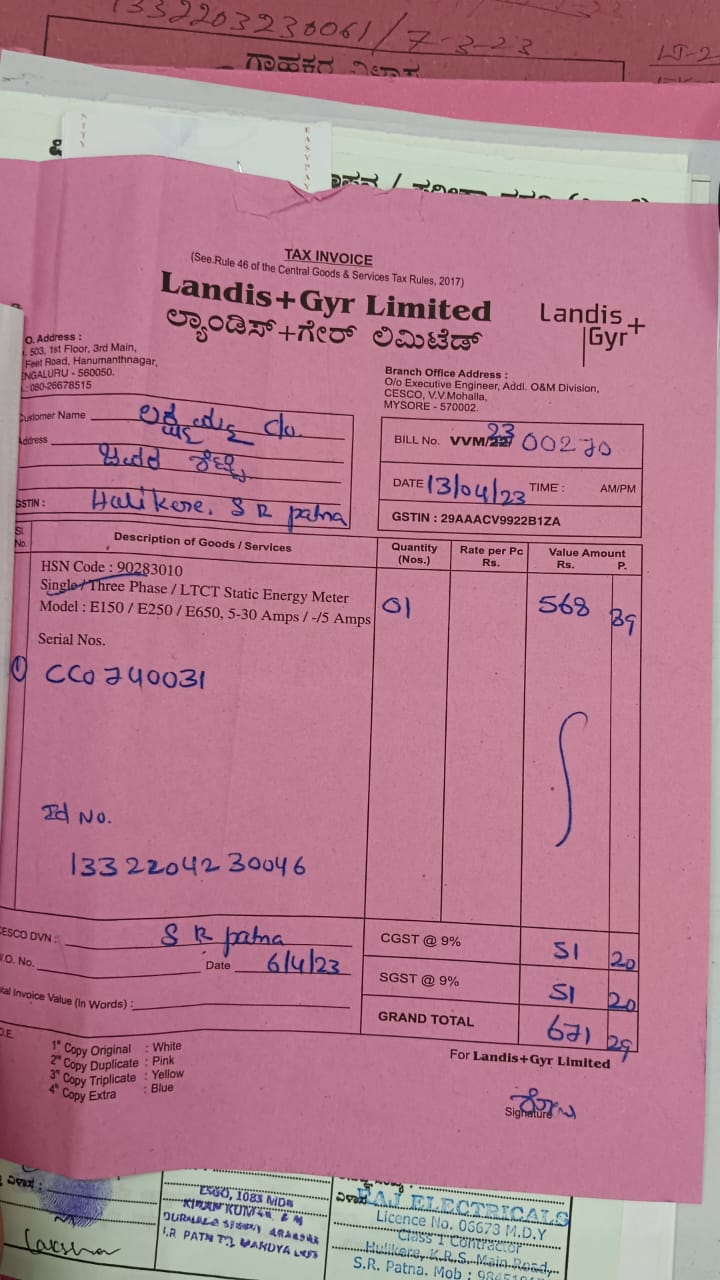 1332203230061/7-3-23
ಗಾಹಕರ ವಿಳಾಸ
EASYPAY
TAX INVOICE
(See.Rule 46 of the Central Goods & Services Tax Rules, 2017)
Landis+Gyr Limited
ಲ್ಯಾಂಡಿಸ್+ಗೇರ್ ಲಿಮಿಟೆಡ್
Landis+
Gyr
O. Address :
503, 1st Floor, 3rd Main,
Feet Road, Hanumanthnagar,
NGALURU - 560050.
: 080-26678515
Branch Office Address :
O/o Executive Engineer, Addl. O&M Division,
CESCO, V.V.Mohalla,
MYSORE - 570002.
Customer Name C/o.
Address
GSTIN : Halikere, S R patna
BILL No. VVM/22/ 23 00270
DATE 13/04/23 TIME : AM/PM
GSTIN : 29AAACV9922B1ZA
Sl. No. Description of Goods / Services Quantity (Nos.) Rate per Pc Rs. Value Amount Rs. P.
HSN Code : 90283010
Single / Three Phase / LTCT Static Energy Meter
Model : E150 / E250 / E650, 5-30 Amps / -/5 Amps 01 568 89
Serial Nos.
1 CC0740031
Id No.
1332204230046
CESCO DVN : S R patna
W.O. No. Date 6/4/23
tal Invoice Value (In Words) :
CGST @ 9% 51 20
SGST @ 9% 51 20
GRAND TOTAL 671 29
1st Copy Original : White
2nd Copy Duplicate : Pink
3rd Copy Triplicate : Yellow
4th Copy Extra : Blue
For Landis+Gyr Limited
Signature
ವಿಳಾಸ :
ESGO, 1083 MDR
KIRAN KUMAR
S.R PATN TQ MANDYA
ವಿಳಾಸ
RAJ ELECTRICALS
Licence No. 06673 M.D.Y
Class 1 Contractor
Hulikere, K.R.S. Main Road,
S.R. Patna. Mob :